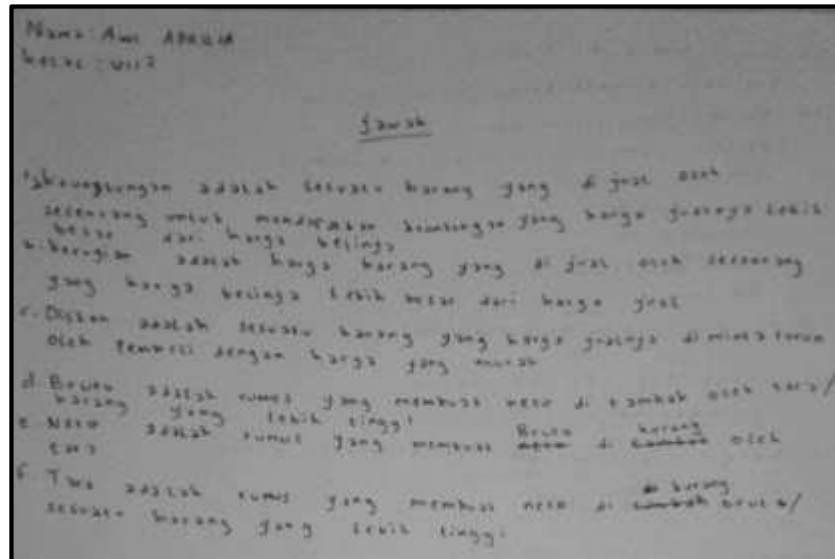 Nama: Ami APRILIA
kelas: VII 2
Jawab
1.a keungtungan adalah sesuatu barang yang di jual oleh
seseorang untuk mendapatkan keuntungan yang harga jualnya lebih
besar dari harga belinya
b. kerugian adalah harga barang yang di jual oleh seseorang
yang harga belinya lebih besar dari harga jual
c. Diskon adalah sesuatu barang yang harga jualnya di minta turun
oleh pembeli dengan harga yang murah
d. Bruto adalah rumus yang membuat neto di tambah oleh tara/
barang yang lebih tinggi
e. Neto adalah rumus yang membuat Bruto di kurang oleh
tara
f. Tara adalah rumus yang membuat neto di kurang bruto/
sesuatu barang yang lebih tinggi